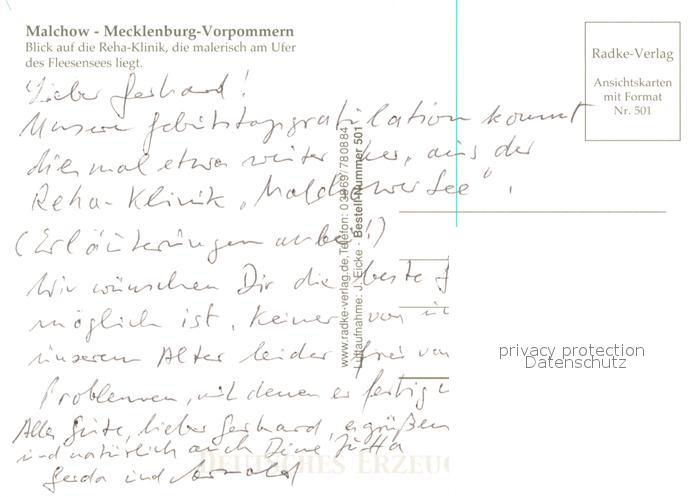 Malchow - Mecklenburg-Vorpommern
Blick auf die Reha-Klinik, die malerisch am Ufer
des Fleesensees liegt.
Radke-Verlag
Ansichtskarten
mit Format
Nr. 501
Lieber Gerhard!
Unsere Geburtstagsgratulation kommt
diesmal etwas weiter her, aus der
Reha-Klinik "Malchower See".
(Erläuterungen anbei!)
Wir wünschen Dir die beste
möglich ist. Keiner von
unserem Alter leider frei von
Problemen, mit denen er fertig
Alles Gute, lieber Gerhard, es grüßen
und natürlich auch Deine Jutta
Gerda und
www.radke-verlag.de, Telefon: 03969/780884
Luftaufnahme: J. Eicke - Bestell-Nummer 501
privacy protection
Datenschutz
DEUTSCHES ERZEUG